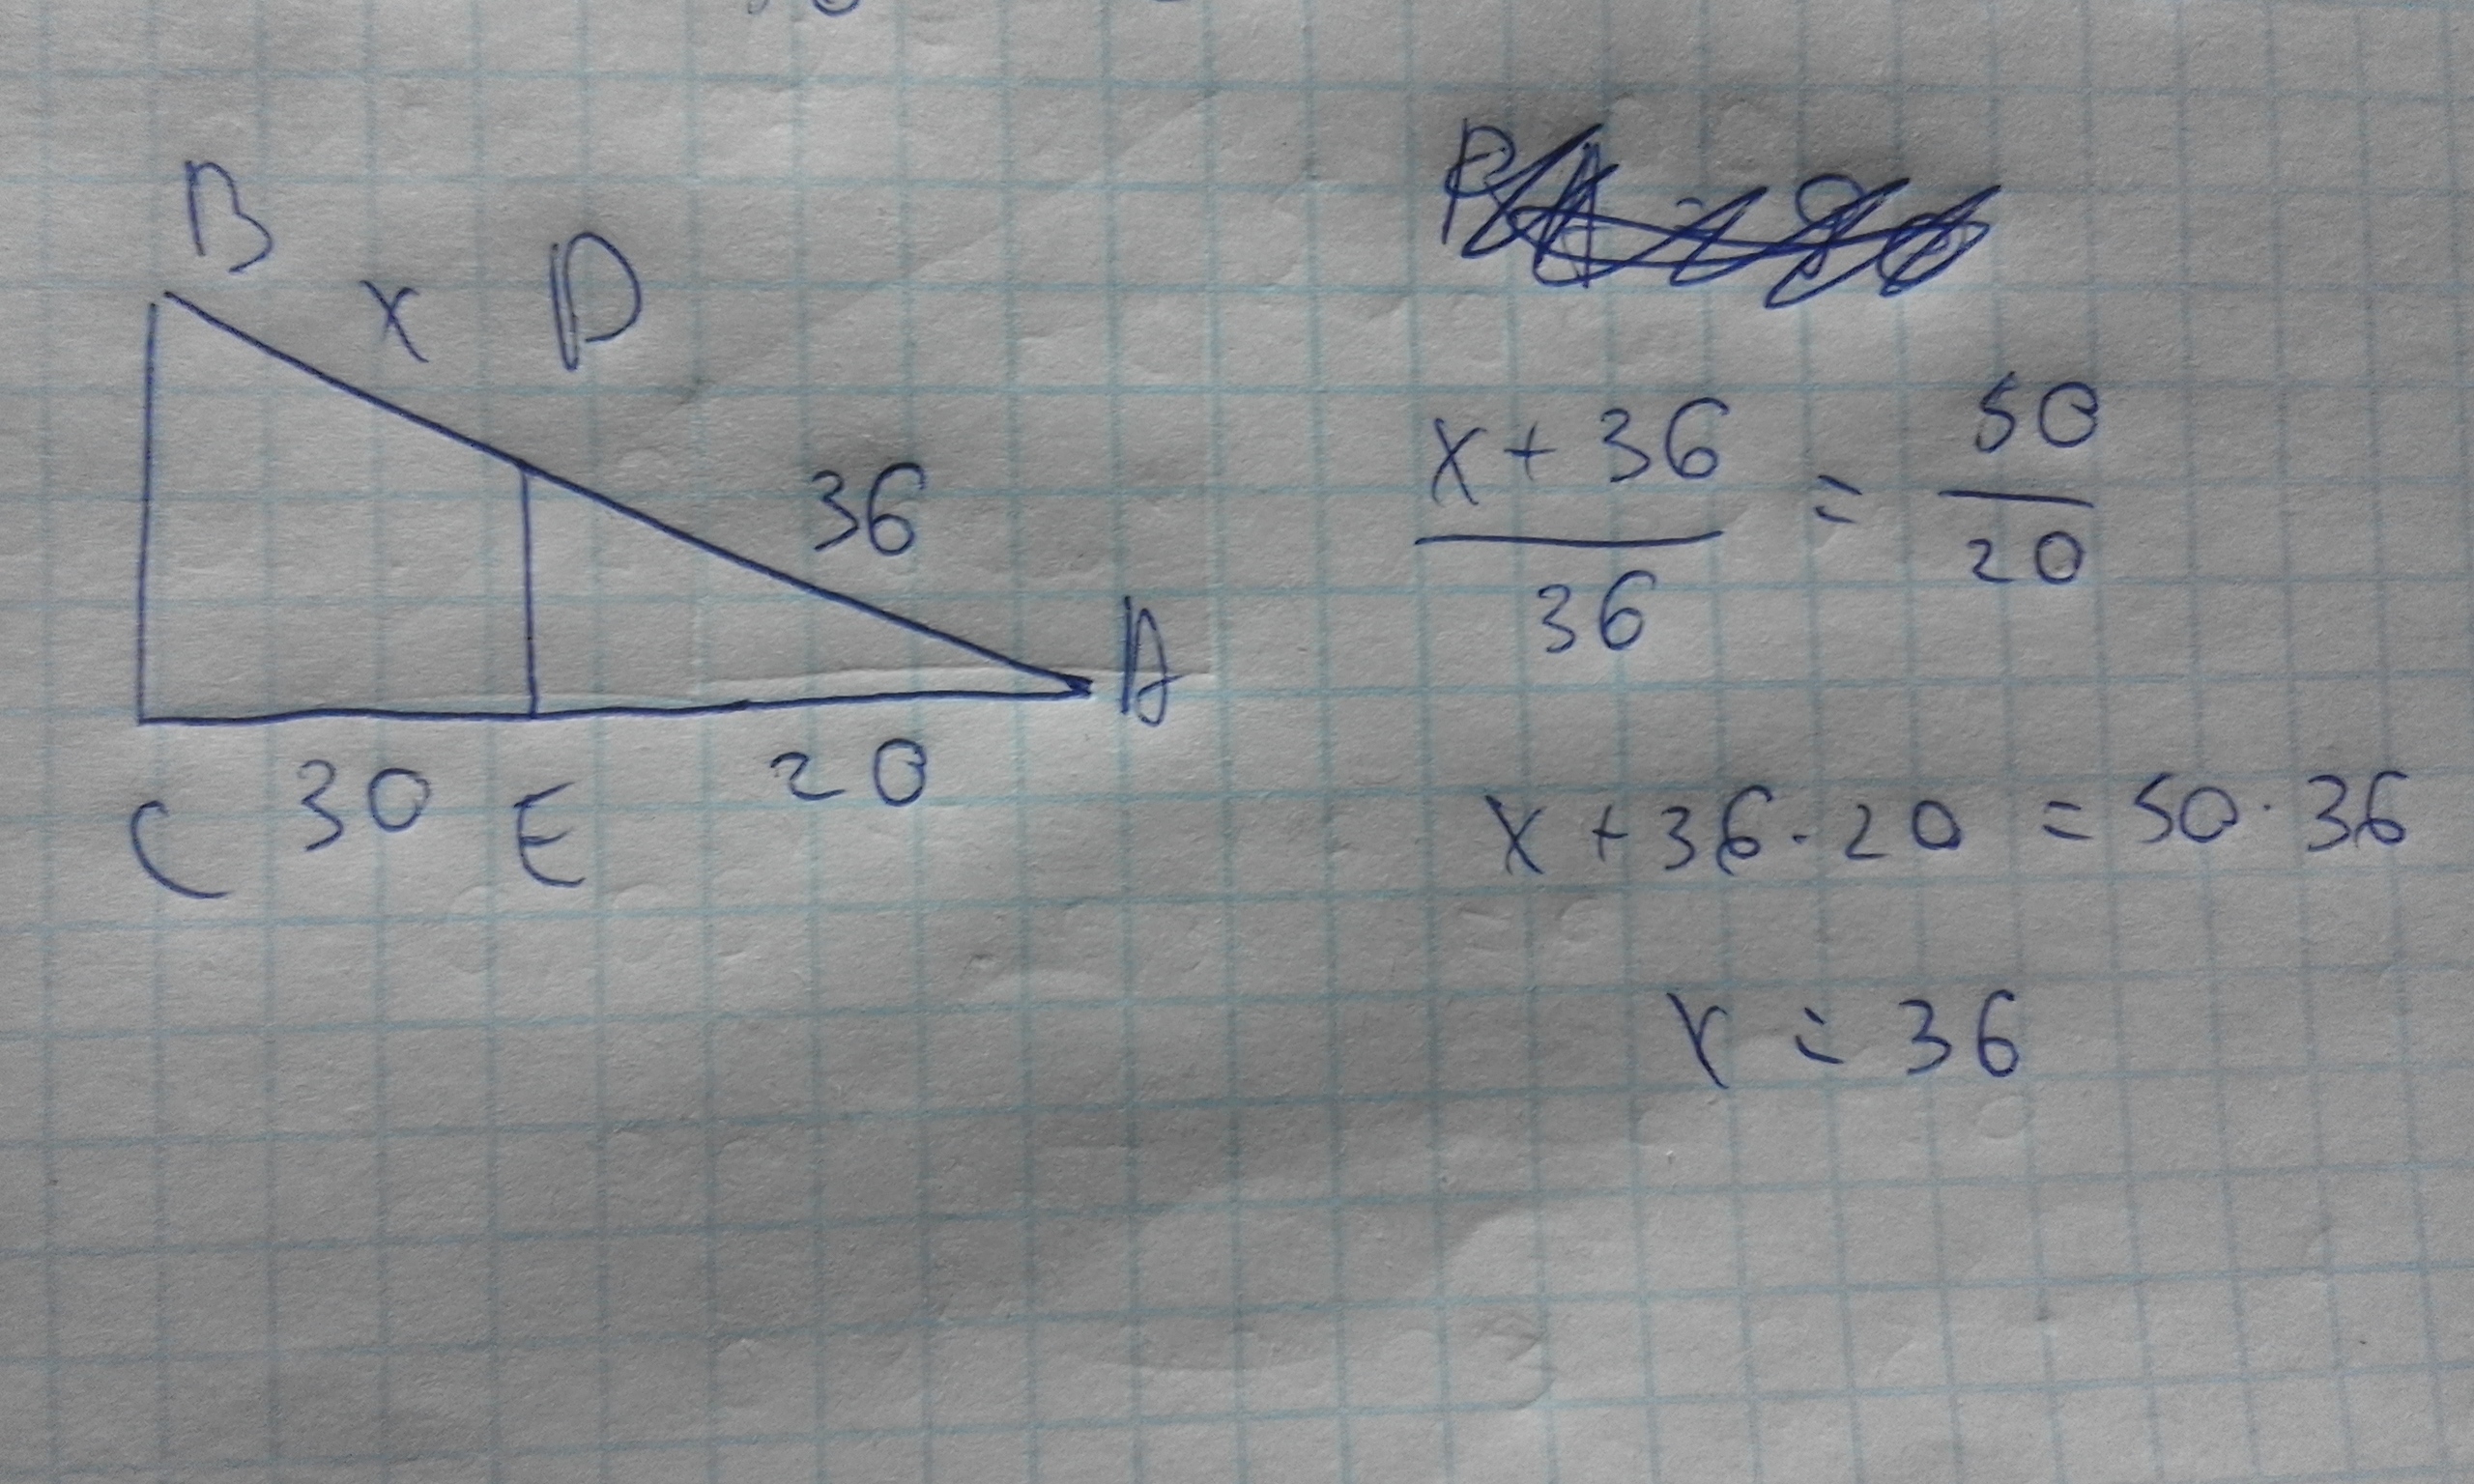 B
x
D
36
A
C 30 E 20
x + 36 / 36 = 50 / 20
x + 36 · 20 = 50 · 36
x = 36